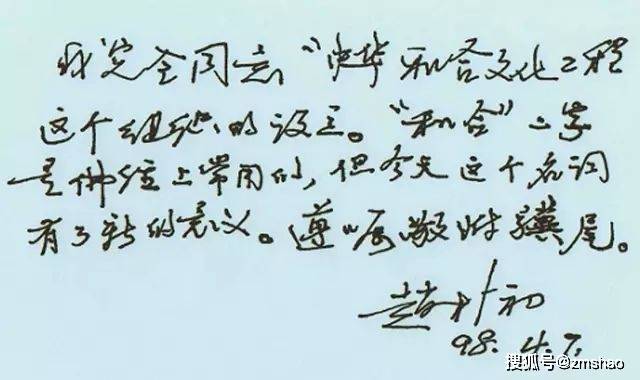 我完全同意“中华和合文化工程
这个组织”的设立。“和合”二字
是佛经上常用的，但今天这个名词
有了新的意义。遵嘱敬附骥尾。
赵朴初
98.4.7.
搜狐号@zmshao